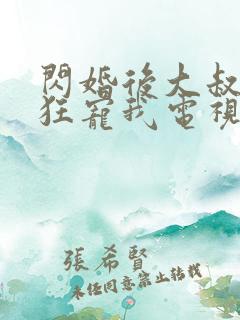 閃婚後大叔
狂寵我電視
張希賢
未經同意禁止轉載